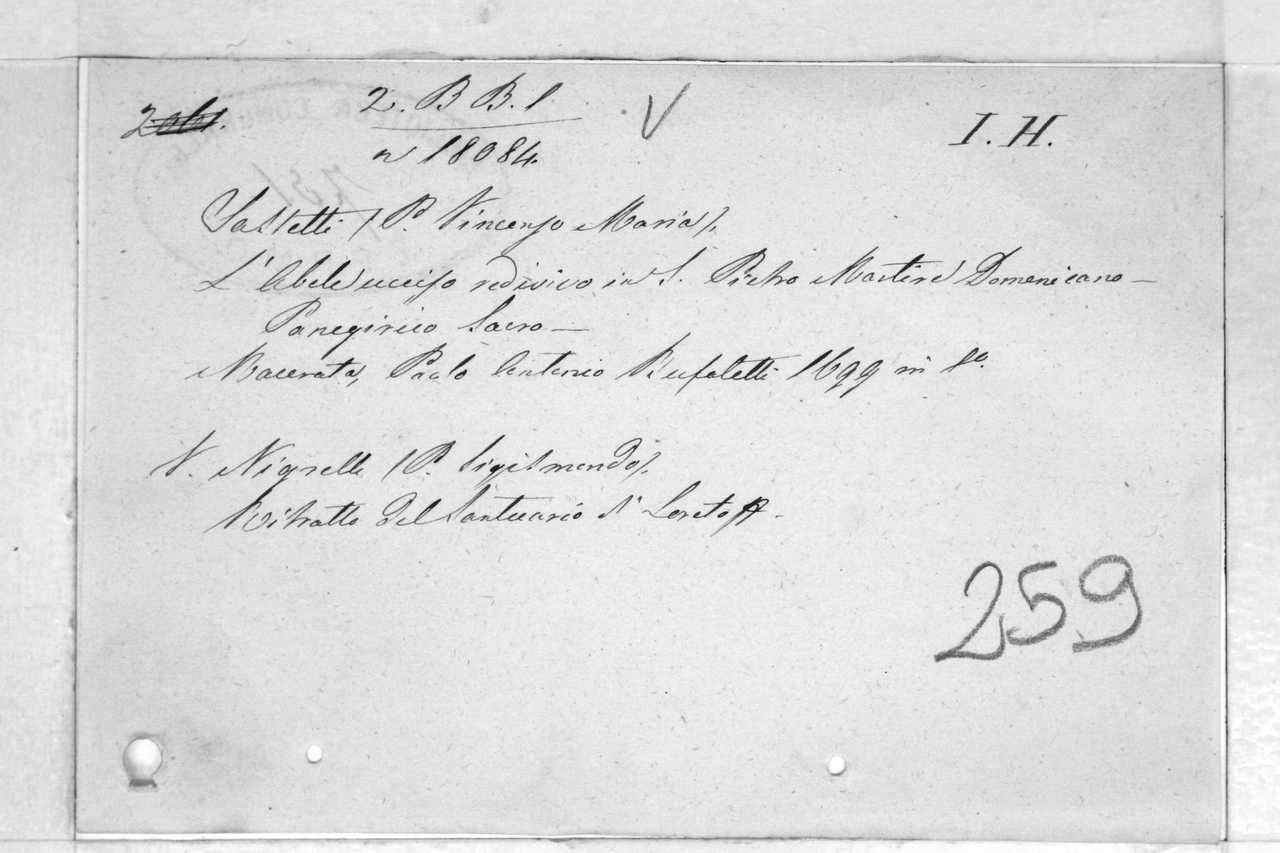 2. B B. 1
n 18084.
I. H.
Sassetti (P. Vincenzo Maria).
L'Abele ucciso redivivo in S. Pietro Martire Domenicano —
Panegirico Sacro —
Macerata, Paolo Antonio Bufaletti 1699 in 8º.
V. Nigrelli (P. Sigismondo).
Ritratto del Santuario di Loreto
259